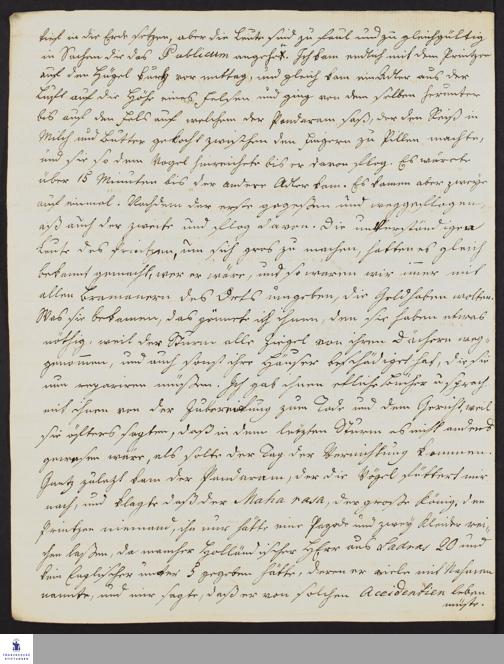 tief in die Erde setzen, aber die Leute sind zu faul und zu gleichgültig
in Sachen die das Publicum angehet. Ich kam endlich mit dem Printzen
auf den Hügel kurtz vor mittag, und gleich kam ein Adler aus der
Luft auf die Höhe eines Felsen und ging von den selben herunter
bis auf den Fels auf welchem der Pandaram saß, der den Reiß in
Milch und Butter gekocht zwischen den Fingern zu Pillen machte,
und sie so dem Vogel hinreichete bis er davon flog. Es währete
über 15 Minuten bis der andere Adler kam. Es kamen aber zweye
auf einmal. Nachdem der erste gegessen und weggeflogen,
aß auch der zweite und flog davon. Die unverständigen
Leute des Printzen, um sich gros zu machen, hatten es gleich
bekannt gemacht, wer er wäre, und so waren wir immer mit
allen Bramanern des Orts umgeben, die Geld haben wolten.
Was sie bekamen, das gönnete ich ihnen, den sie haben etwas
nöthig, weil der Sturm alle Ziegel von ihren Dächern weg-
genommen, und auch sonst ihre Häuser beschädiget hat, die sie
nun repariren müssen. Ich gab ihnen etliche Bücher u. sprach
mit ihnen von der Zubereitung zum Tode und dem Gericht, weil
sie öfters sagten, daß in dem letzten Sturm es nicht anders
gewesen wäre, als solte der Tag der Vernichtung kommen.
Gantz zuletzt kam der Pandaram, der die Vögel füttert mir
nach, und klagte daß der Maha rasa, der große König, den
Printzen niemand, ihm nur hätte eine Pagode und zwey Kleider rei-
chen lassen, da mancher Holländischer Herr aus Sadras 20 und
kein Englischer unter 5 gegeben hätte, deren er viele mit Nahmen
nannte, und mir sagte, daß er von solchen Accidentien leben
müste.
FRANCKESCHE
STIFTUNGEN